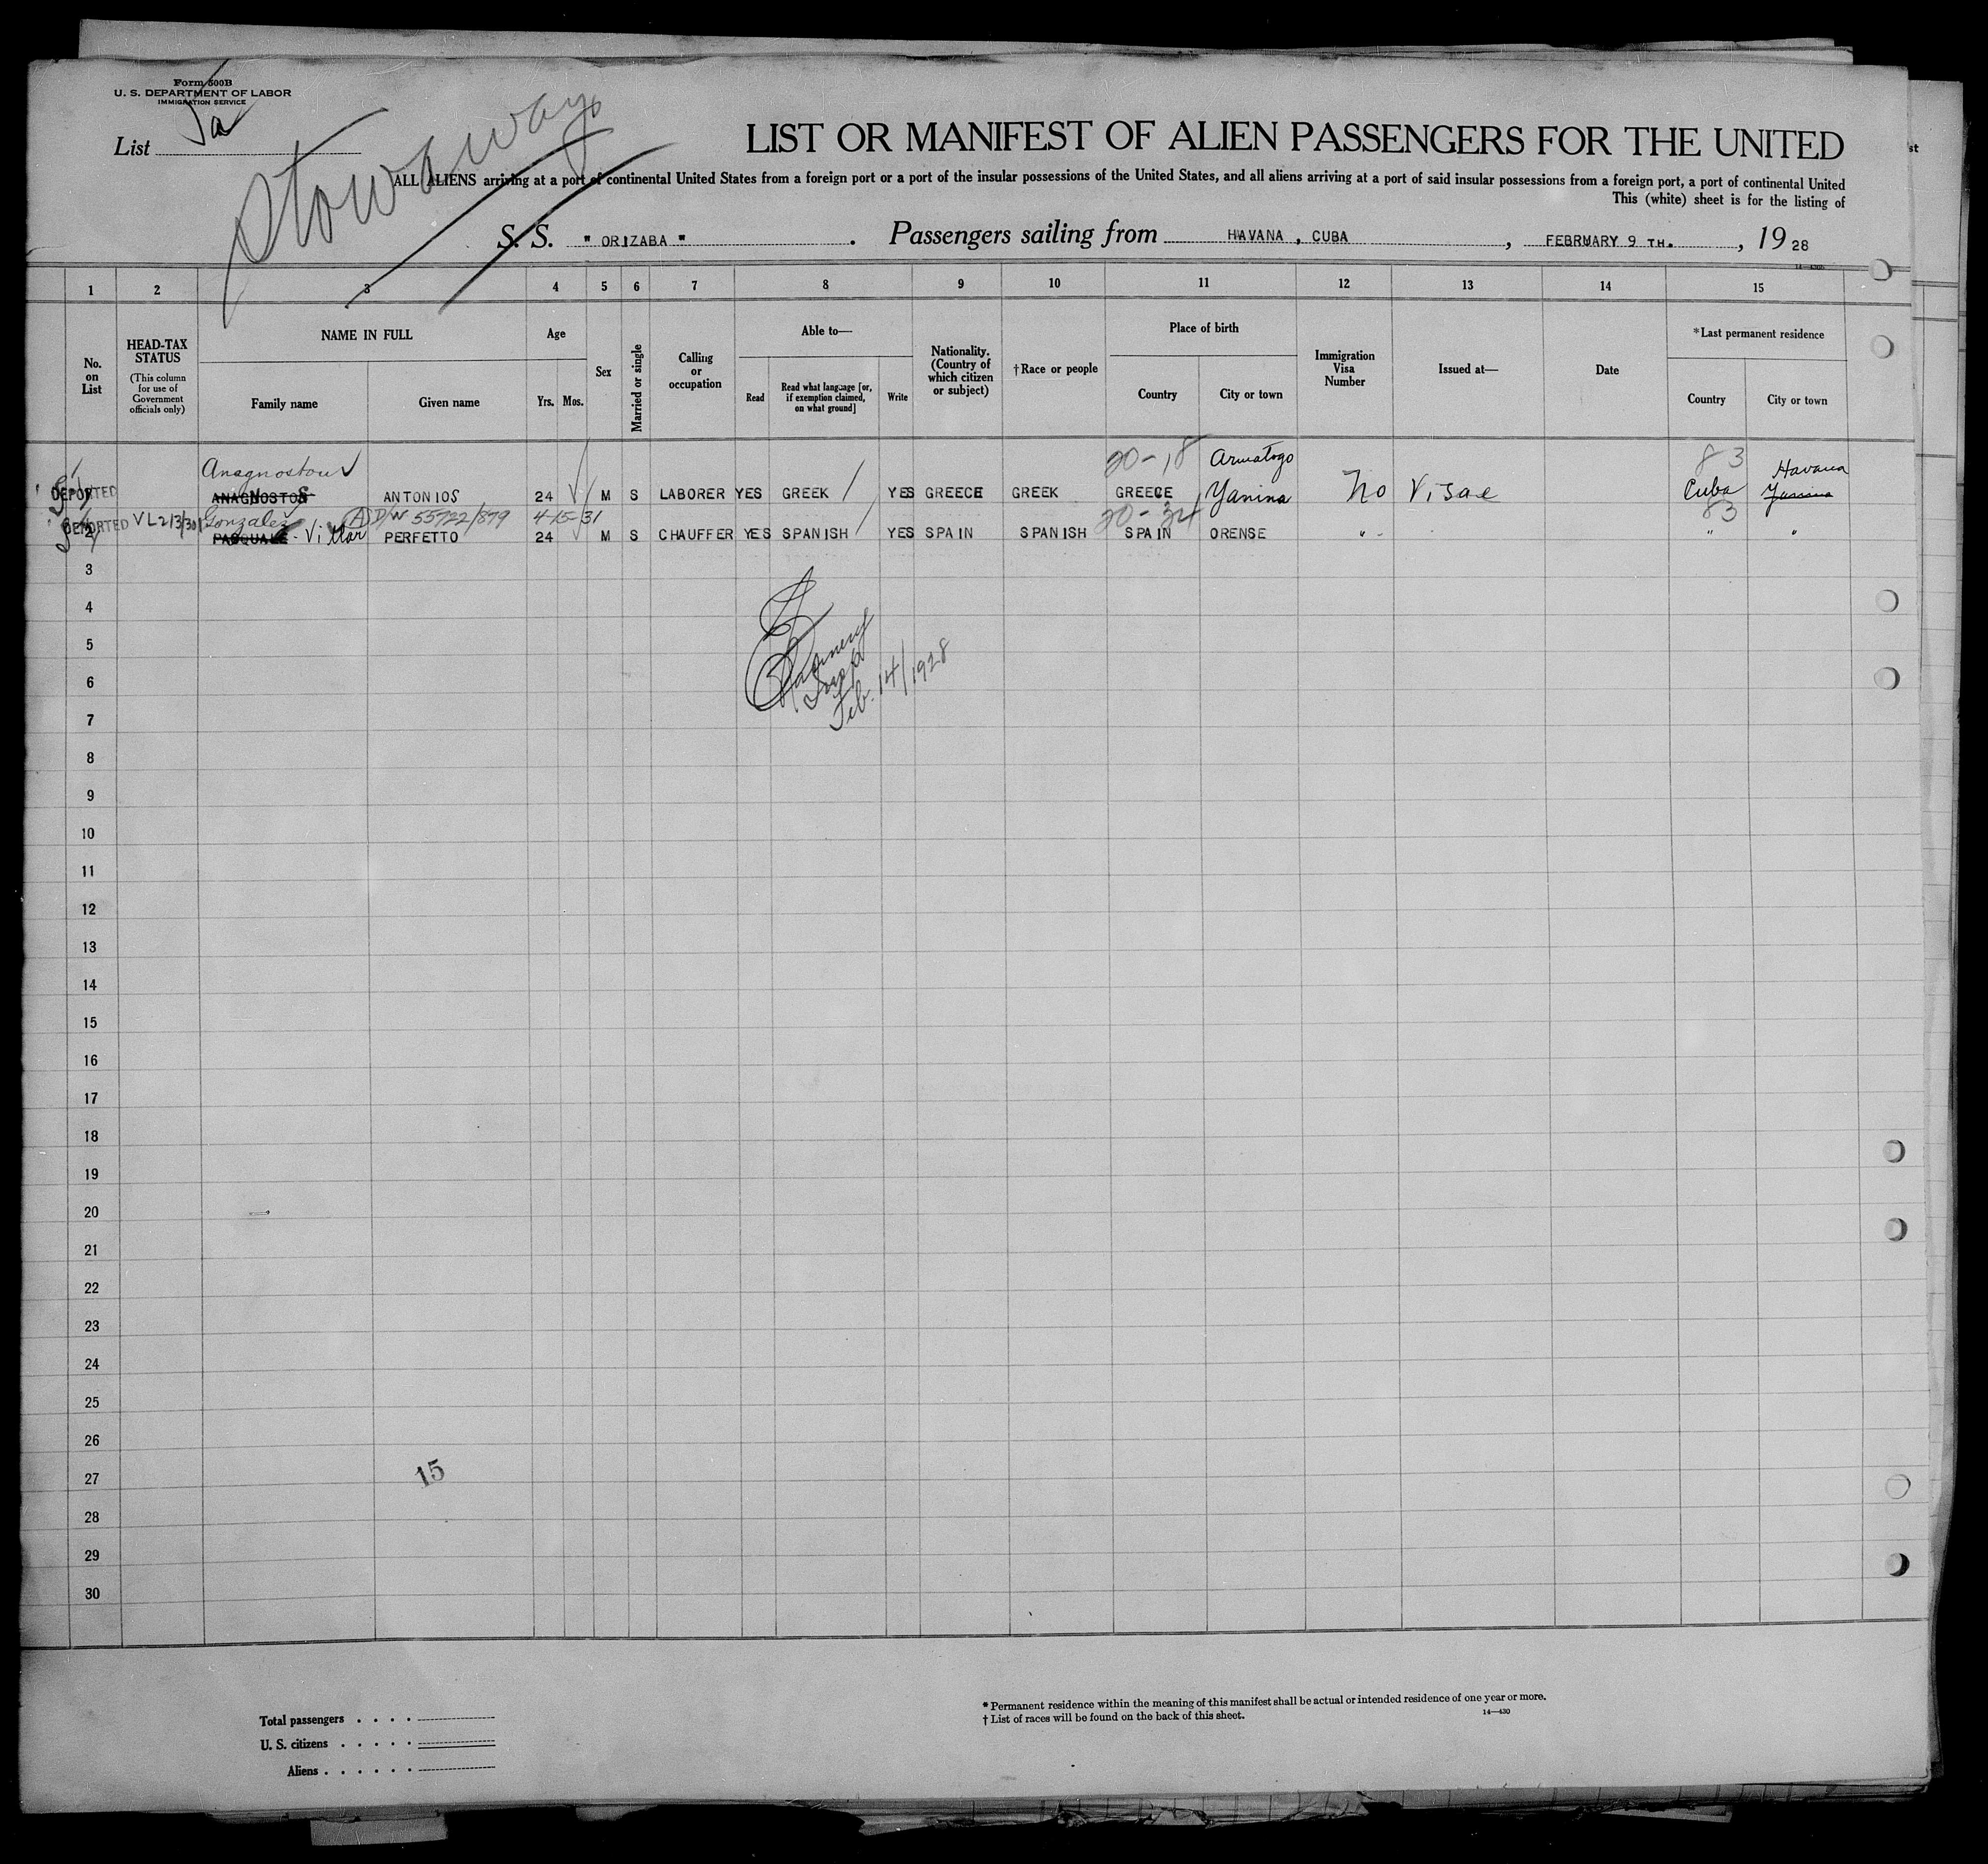 Form 500B
U. S. DEPARTMENT OF LABOR
IMMIGRATION SERVICE
List
Stowaways
LIST OR MANIFEST OF ALIEN PASSENGERS FOR THE UNITED
ALL ALIENS arriving at a port of continental United States from a foreign port or a port of the insular possessions of the United States, and all aliens arriving at a port of said insular possessions from a foreign port, a port of continental United
This (white) sheet is for the listing of
S. S. " ORIZABA " . Passengers sailing from HAVANA , CUBA , FEBRUARY 9 TH. , 19 28
1 2 3 4 5 6 7 8 9 10 11 12 13 14 15
No. on List
HEAD-TAX STATUS
(This column for use of Government officials only)
NAME IN FULL
Family name
Given name
Age
Yrs. Mos.
Sex
Married or single
Calling or occupation
Able to—
Read
Read what language [or, if exemption claimed, on what ground]
Write
Nationality. (Country of which citizen or subject)
†Race or people
Place of birth
Country
City or town
Immigration Visa Number
Issued at—
Date
*Last permanent residence
Country
City or town
Anagnostou 20-18 83 Havana
DEPORTED ANAGNOSTOS ANTONIOS 24 M S LABORER YES GREEK YES GREECE GREEK GREECE Yanina No Visae Cuba
VL 2/3/30 Gonzalez A D/W 55722/879 4-15-31 20-34 83
DEPORTED 2 PASQUALE - Villar PERFETTO 24 M S CHAUFFER YES SPANISH YES SPAIN SPANISH SPAIN ORENSE " - " "
3
4
5
6
Feb. 14/1928
7
8
9
10
11
12
13
14
15
16
17
18
19
20
21
22
23
24
25
26
27
15
28
29
30
Total passengers . . . .
U. S. citizens . . . . .
Aliens . . . . . .
* Permanent residence within the meaning of this manifest shall be actual or intended residence of one year or more.
† List of races will be found on the back of this sheet.
14—430